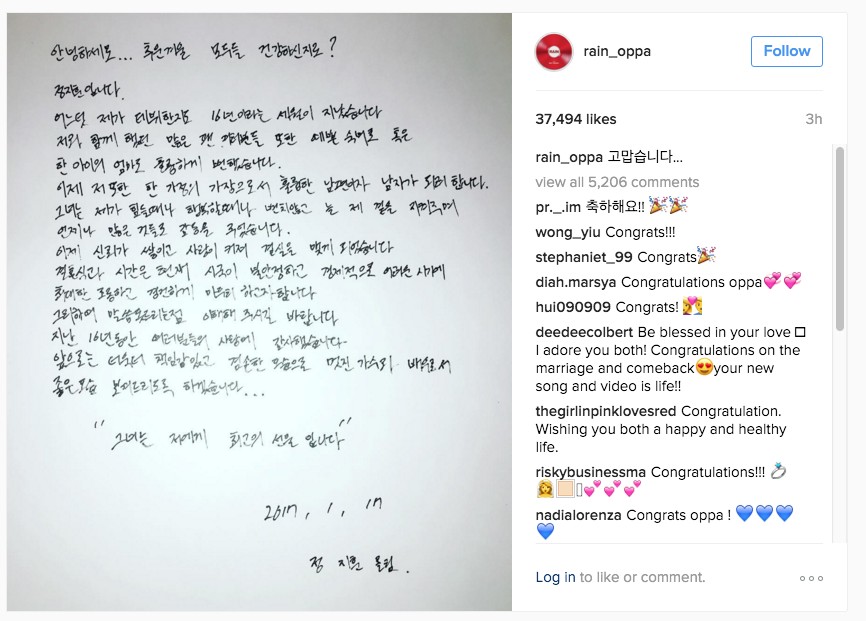 안녕하세요... 추운겨울 모두들 건강하신지요?
정지훈입니다.
어느덧 제가 데뷔한지도 16년이라는 세월이 지났습니다
저와 함께 했던 많은 팬 여러분들 또한 예쁜 숙녀로 혹은
한 아이의 엄마로 훌륭하게 변했습니다.
이제 저 또한 한 가정의 가장으로서 훌륭한 남편이자 남자가 되려 합니다.
그녀는 제가 힘들때나 행복할때나 변치않고 늘 제 곁을 지켜주며
언제나 많은 것들로 감동을 주었습니다.
이제 신뢰가 쌓이고 사랑이 커져 결실을 맺게 되었습니다
결혼식과 시간은 현재 시국이 불안정하고 경제적으로 어려운 시기에
최대한 조용하고 경건하게 마무리 하고자합니다
그리하여 말씀못드리는점 이해해 주시길 바랍니다
지난 16년동안 여러분들의 사랑에 감사했습니다
앞으로는 더욱더 책임감있고 겸손한 모습으로 멋진 가수와 배우로서
좋은모습 보여드리도록 하겠습니다...
"그녀는 저에게 최고의 선물 입니다"
2017, 1, 17
정 지훈 올림.
RAIN
rain_oppa
Follow
37,494 likes 3h
rain_oppa 고맙습니다...
view all 5,206 comments
pr._.im 축하해요!! 🎉🎉
wong_yiu Congrats!!!
stephaniet_99 Congrats🎉
diah.marsya Congratulations oppa💕💕
hui090909 Congrats! 💏
deedeecolbert Be blessed in your love □
I adore you both! Congratulations on the
marriage and comeback😍your new
song and video is life!!
thegirlinpinklovesred Congratulation.
Wishing you both a happy and healthy
life.
riskybusinessma Congratulations!!! 💍
👰🏻▯💕💕💕
nadialorenza Congrats oppa ! 💙💙💙
💙
Log in to like or comment.